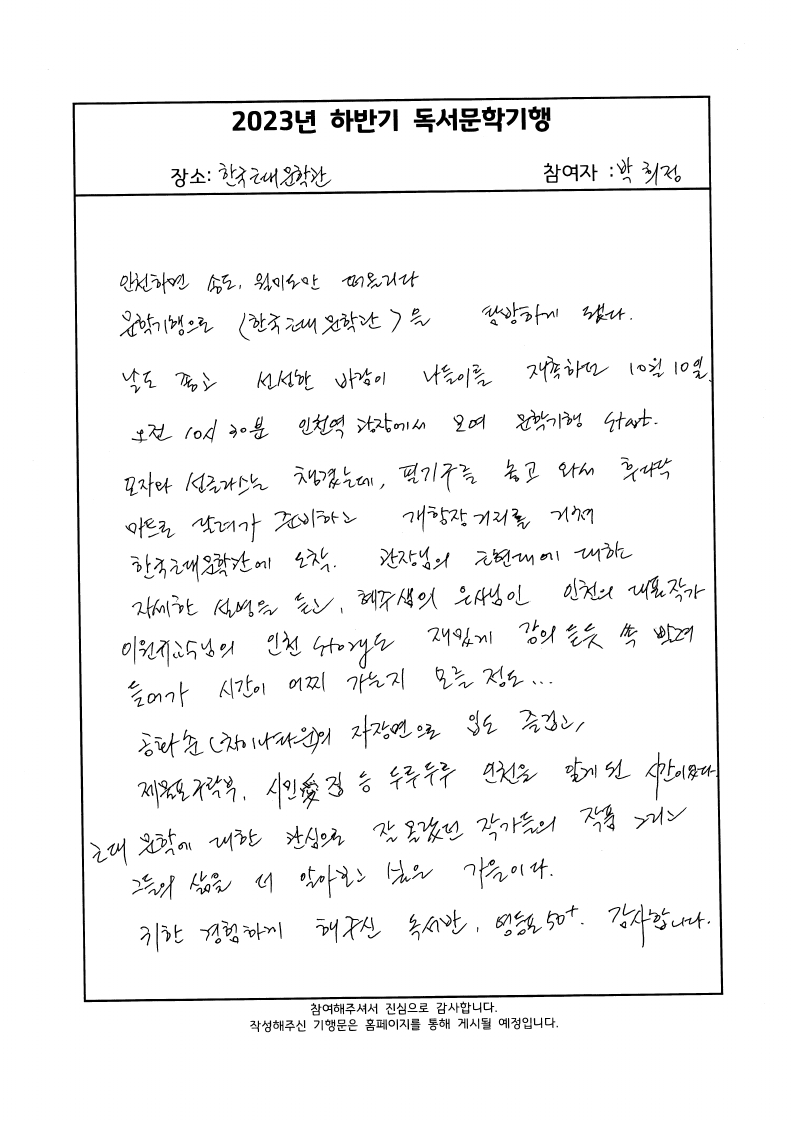 2023년 하반기 독서문학기행
장소: 한국근대문학관
참여자 : 박희정
인천하면 송도, 월미도만 떠올리다
문학기행으로 <한국근대문학관>을 탐방하게 됐다.
날도 좋고 선선한 바람이 나들이를 재촉하던 10월 10일.
오전 10시 30분 인천역 광장에서 모여 문학기행 start.
모자와 선글라스는 챙겼는데, 필기구를 놓고 와서 후다닥
마트로 달려가 준비하고 개항장거리를 거쳐
한국근대문학관에 도착. 관장님의 근현대에 대하는
자세한 설명을 듣고, 혜주샘의 은사님인 인천의 대표작가
이원규교수님의 인천 story도 재밌게 강의 듣듯 쏙 빨려
들어가 시간이 어찌 가는지 모를 정도...
공화춘(차이나타운)의 자장면으로 입도 즐겁고,
제물포구락부, 시인愛집 등 두루두루 인천을 알게 된 시간이었다.
근대 문학에 대한 관심으로 잘 몰랐던 작가들의 작품 그리고
그들의 삶을 더 알아보고 싶은 가을이다.
귀한 경험하게 해주신 독서반, 영등포50+. 감사합니다.
참여해주셔서 진심으로 감사합니다.
작성해주신 기행문은 홈페이지를 통해 게시될 예정입니다.